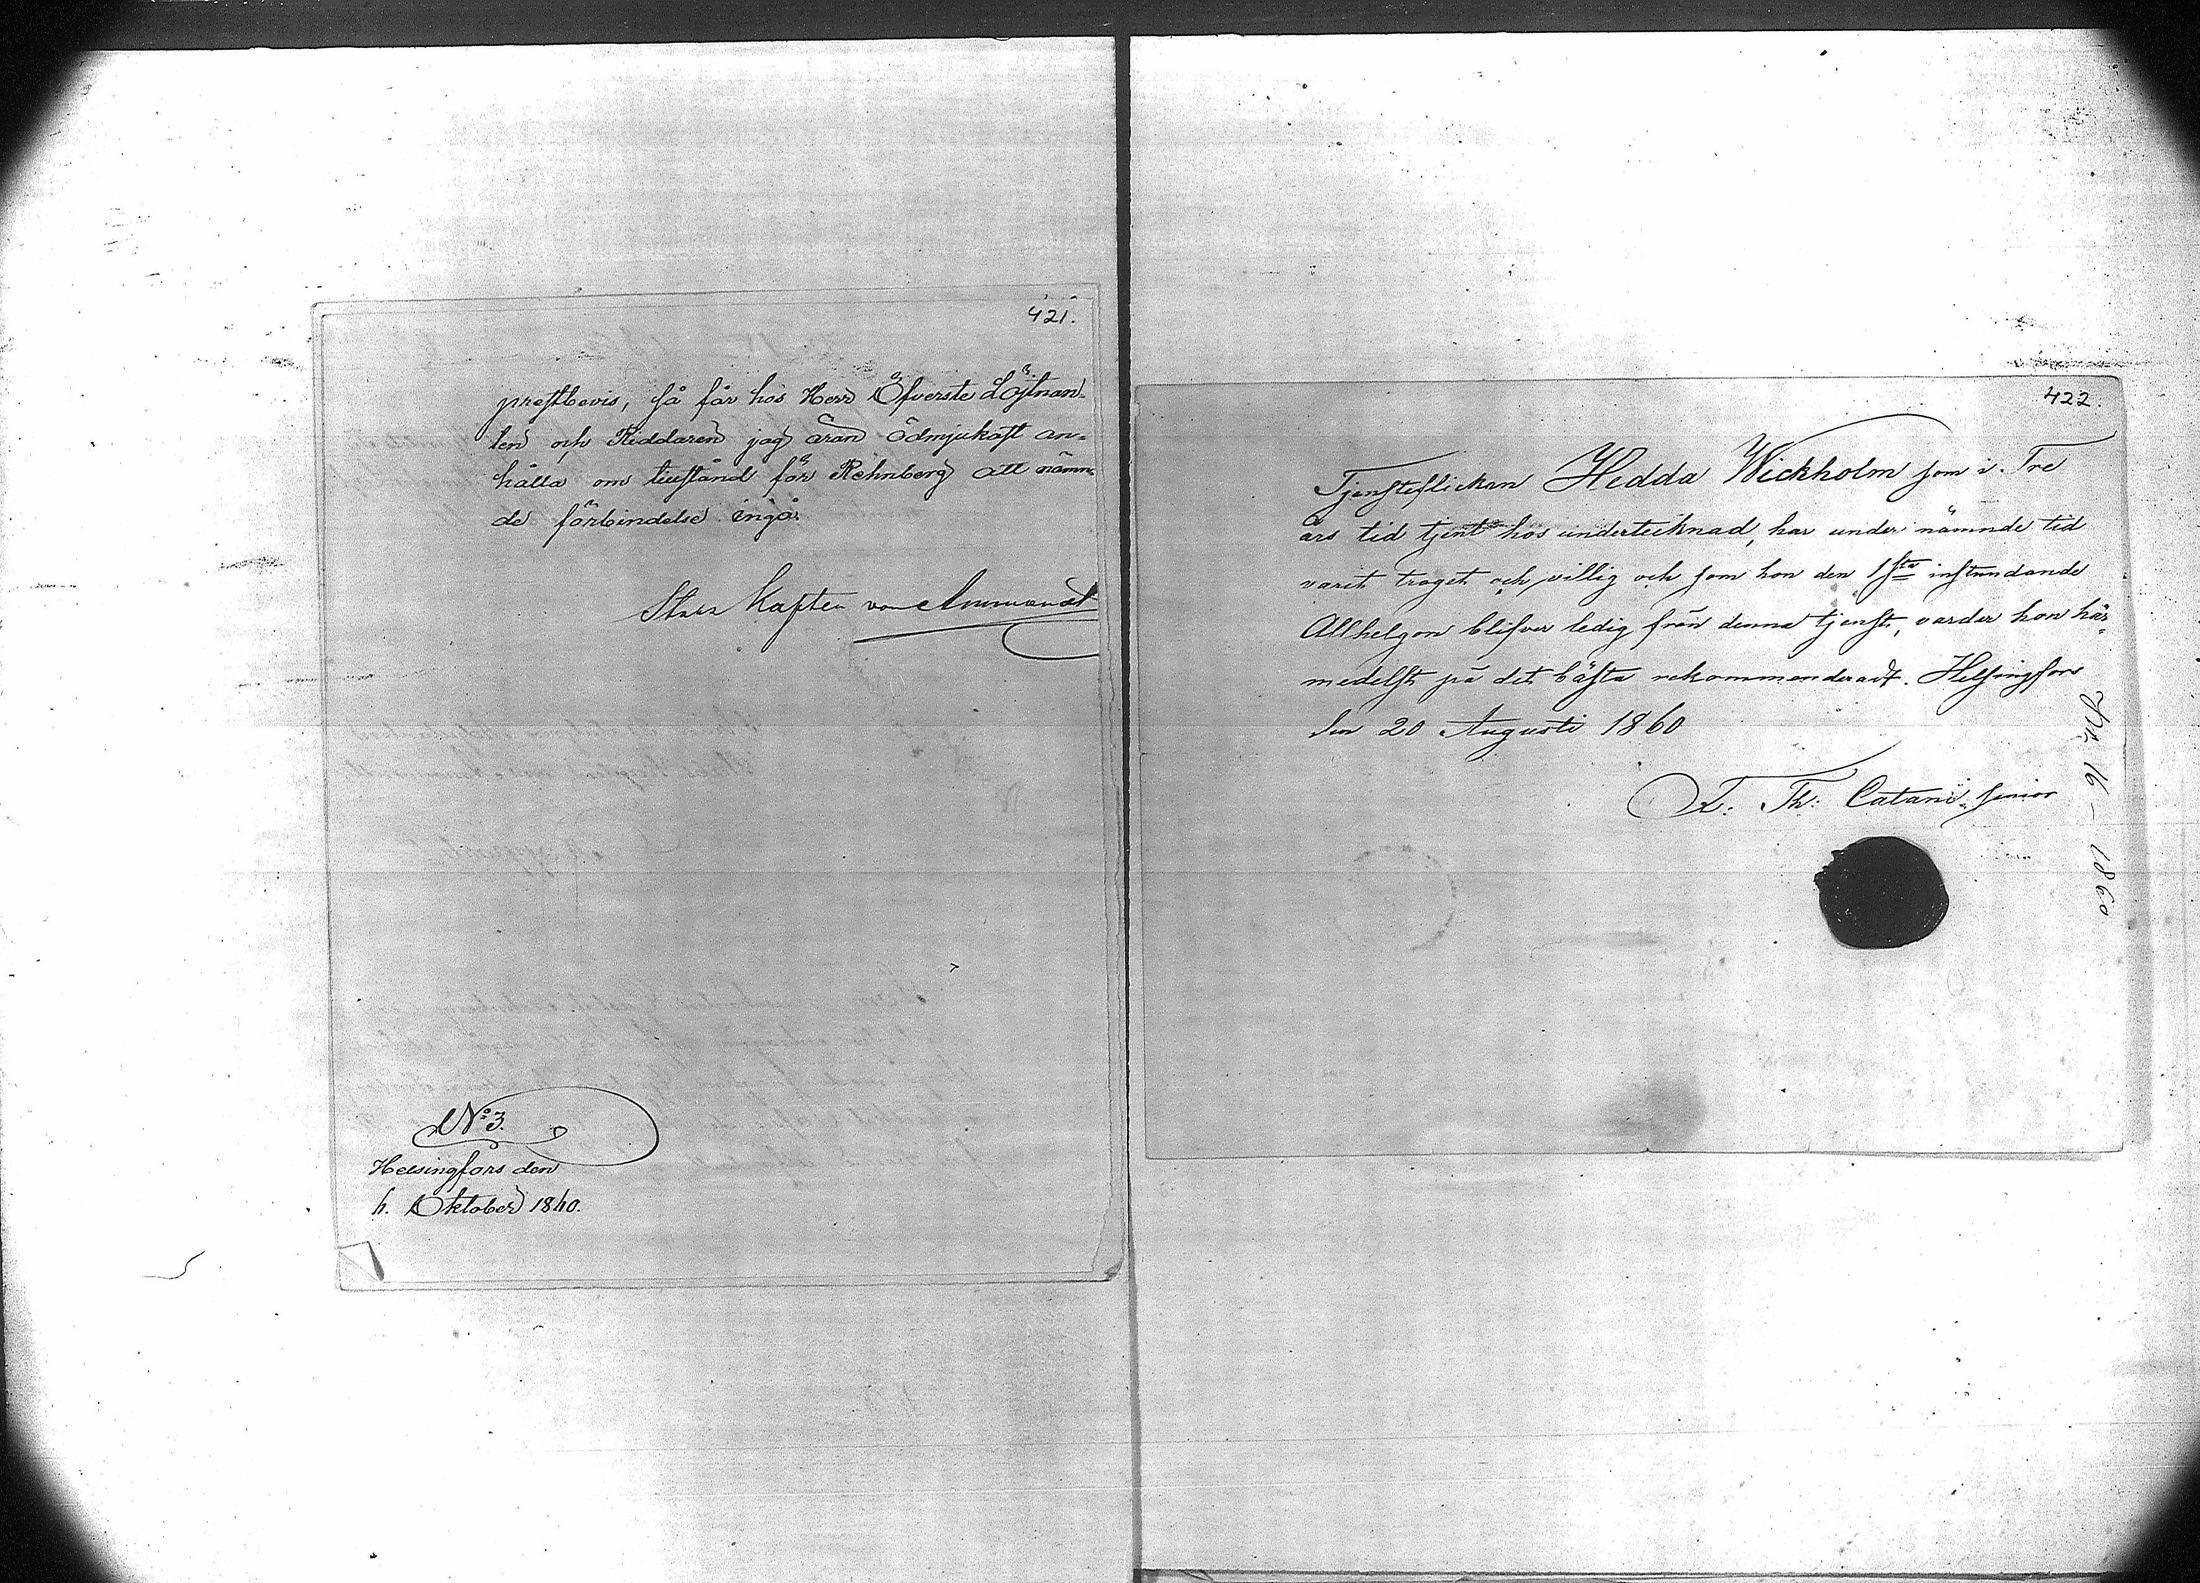 421.
prestbevis, så får hos Herr Öfverste Löjtnan-
ten och Riddaren jag äran ödmjukast an-
hålla om tillstånd för Rehnberg att nämn-
de förbindelse ingå.
Stabs Kapten von Ammondt
No 3.
Helsingfors den
6. Oktober 1860.
422.
Tjensteflickan Hedda Wickholm som i Tre
års tid tjent hos undertecknad, har under nämnde tid
varit troget och villig och som hon den 1sta instundande
Allhelgon blifver ledig från denna tjenst, varder hon här-
medelst på det bästa rekommenderadt. Helsingfors
den 20 Augusti 1860
F. Th: Catani senior
No 16 – 1860